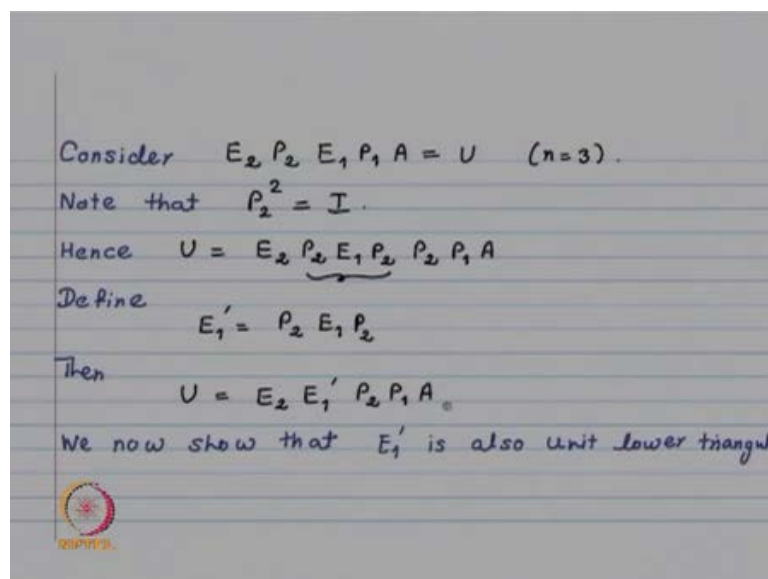 Consider E₂ P₂ E₁ P₁ A = U (n=3).
Note that P₂² = I.
Hence U = E₂ P₂ E₁ P₂ P₂ P₁ A
Define
E₁′ = P₂ E₁ P₂
Then
U = E₂ E₁′ P₂ P₁ A
We now show that E₁′ is also unit lower triangul
NPTEL